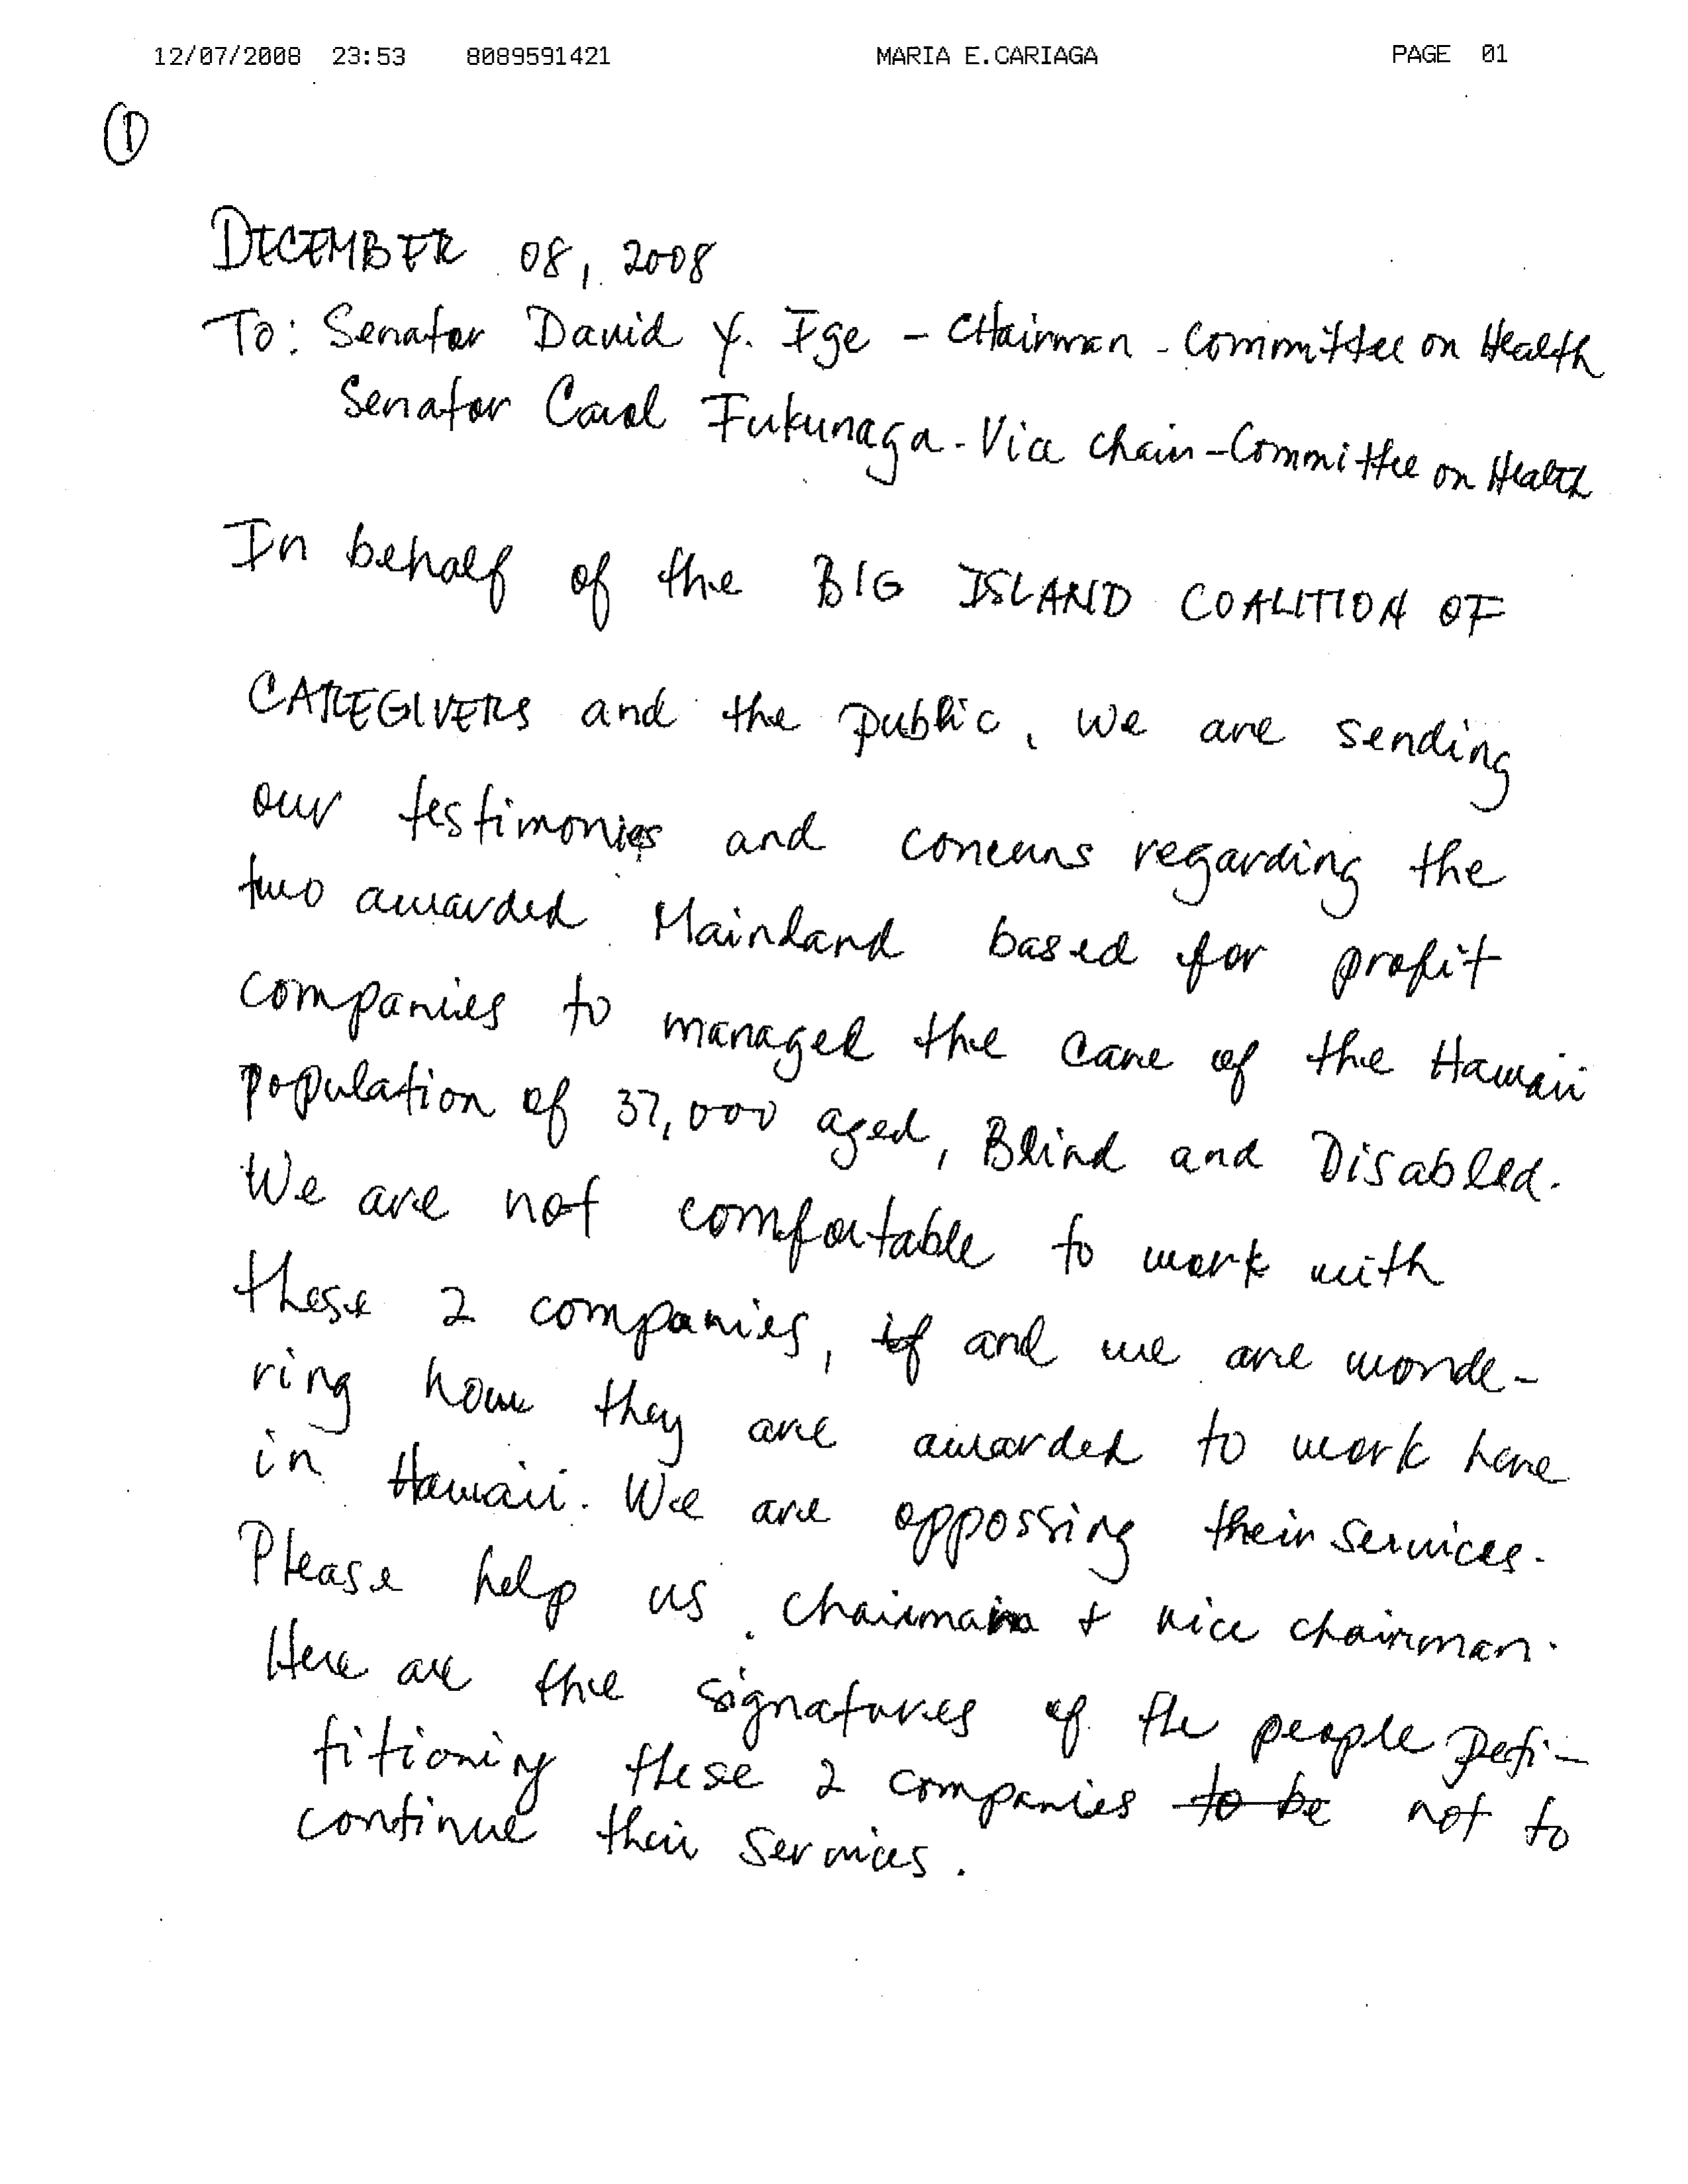 12/07/2008 23:53 8089591421 MARIA E.CARIAGA PAGE 01
1
DECEMBER 08, 2008
To: Senator David Y. Ige - Chairman - Committee on Health
Senator Carol Fukunaga - Vice Chair - Committee on Health
In behalf of the BIG ISLAND COALITION OF
CAREGIVERS and the public, we are sending
our testimonies and concerns regarding the
two awarded Mainland based for profit
companies to managed the care of the Hawaii
population of 37,000 aged, Blind and Disabled.
We are not comfortable to work with
these 2 companies, if and we are wonde-
ring how they are awarded to work here
in Hawaii. We are oppossing their services.
Please help us, chairman + vice chairman.
Here are the signatures of the people peti-
titioning these 2 companies to be not to
continue their services.